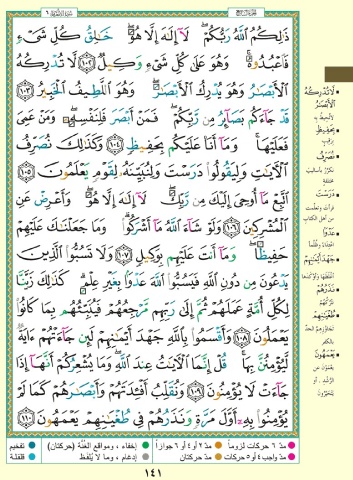 ذَٰلِكُمُ ٱللَّهُ رَبُّكُمْ ۖ لَآ إِلَٰهَ إِلَّا هُوَ ۖ خَٰلِقُ كُلِّ شَىْءٍ
فَٱعْبُدُوهُ ۚ وَهُوَ عَلَىٰ كُلِّ شَىْءٍ وَكِيلٌ ١٠٢ لَّا تُدْرِكُهُ
ٱلْأَبْصَٰرُ وَهُوَ يُدْرِكُ ٱلْأَبْصَٰرَ ۖ وَهُوَ ٱللَّطِيفُ ٱلْخَبِيرُ ١٠٣
قَدْ جَآءَكُم بَصَآئِرُ مِن رَّبِّكُمْ ۖ فَمَنْ أَبْصَرَ فَلِنَفْسِهِۦ ۖ وَمَنْ عَمِىَ
فَعَلَيْهَا ۚ وَمَآ أَنَا۠ عَلَيْكُم بِحَفِيظٍ ١٠٤ وَكَذَٰلِكَ نُصَرِّفُ
ٱلْءَايَٰتِ وَلِيَقُولُوا۟ دَرَسْتَ وَلِنُبَيِّنَهُۥ لِقَوْمٍ يَعْلَمُونَ ١٠٥
ٱتَّبِعْ مَآ أُوحِىَ إِلَيْكَ مِن رَّبِّكَ ۖ لَآ إِلَٰهَ إِلَّا هُوَ ۖ وَأَعْرِضْ عَنِ
ٱلْمُشْرِكِينَ ١٠٦ وَلَوْ شَآءَ ٱللَّهُ مَآ أَشْرَكُوا۟ ۗ وَمَا جَعَلْنَٰكَ عَلَيْهِمْ
حَفِيظًا ۖ وَمَآ أَنتَ عَلَيْهِم بِوَكِيلٍ ١٠٧ وَلَا تَسُبُّوا۟ ٱلَّذِينَ
يَدْعُونَ مِن دُونِ ٱللَّهِ فَيَسُبُّوا۟ ٱللَّهَ عَدْوًۢا بِغَيْرِ عِلْمٍ ۗ كَذَٰلِكَ زَيَّنَّا
لِكُلِّ أُمَّةٍ عَمَلَهُمْ ثُمَّ إِلَىٰ رَبِّهِم مَّرْجِعُهُمْ فَيُنَبِّئُهُم بِمَا كَانُوا۟
يَعْمَلُونَ ١٠٨ وَأَقْسَمُوا۟ بِٱللَّهِ جَهْدَ أَيْمَٰنِهِمْ لَئِن جَآءَتْهُمْ ءَايَةٌ
لَّيُؤْمِنُنَّ بِهَا ۚ قُلْ إِنَّمَا ٱلْءَايَٰتُ عِندَ ٱللَّهِ ۖ وَمَا يُشْعِرُكُمْ أَنَّهَآ إِذَا
جَآءَتْ لَا يُؤْمِنُونَ ١٠٩ وَنُقَلِّبُ أَفْـِٔدَتَهُمْ وَأَبْصَٰرَهُمْ كَمَا لَمْ
يُؤْمِنُوا۟ بِهِۦٓ أَوَّلَ مَرَّةٍ وَنَذَرُهُمْ فِى طُغْيَٰنِهِمْ يَعْمَهُونَ ١١٠
لَّا تُدْرِكُهُ
ٱلْأَبْصَٰرُ
بِحَفِيظٍ
نُصَرِّفُ
دَرَسْتَ
عَدْوًا
جَهْدَ أَيْمَٰنِهِمْ
نَذَرُهُمْ
طُغْيَٰنِهِمْ
يَعْمَهُونَ
مدّ ٦ حركات لزوماً
مدّ ٢ أو ٤ أو ٦ جوازاً
إخفاء، ومواقع الغُنَّة (حركتان)
تفخيم
مدّ واجب ٤ أو ٥ حركات
مدّ حركتان
إدغام، وما لا يُلفَظ
قلقلة
١٤١